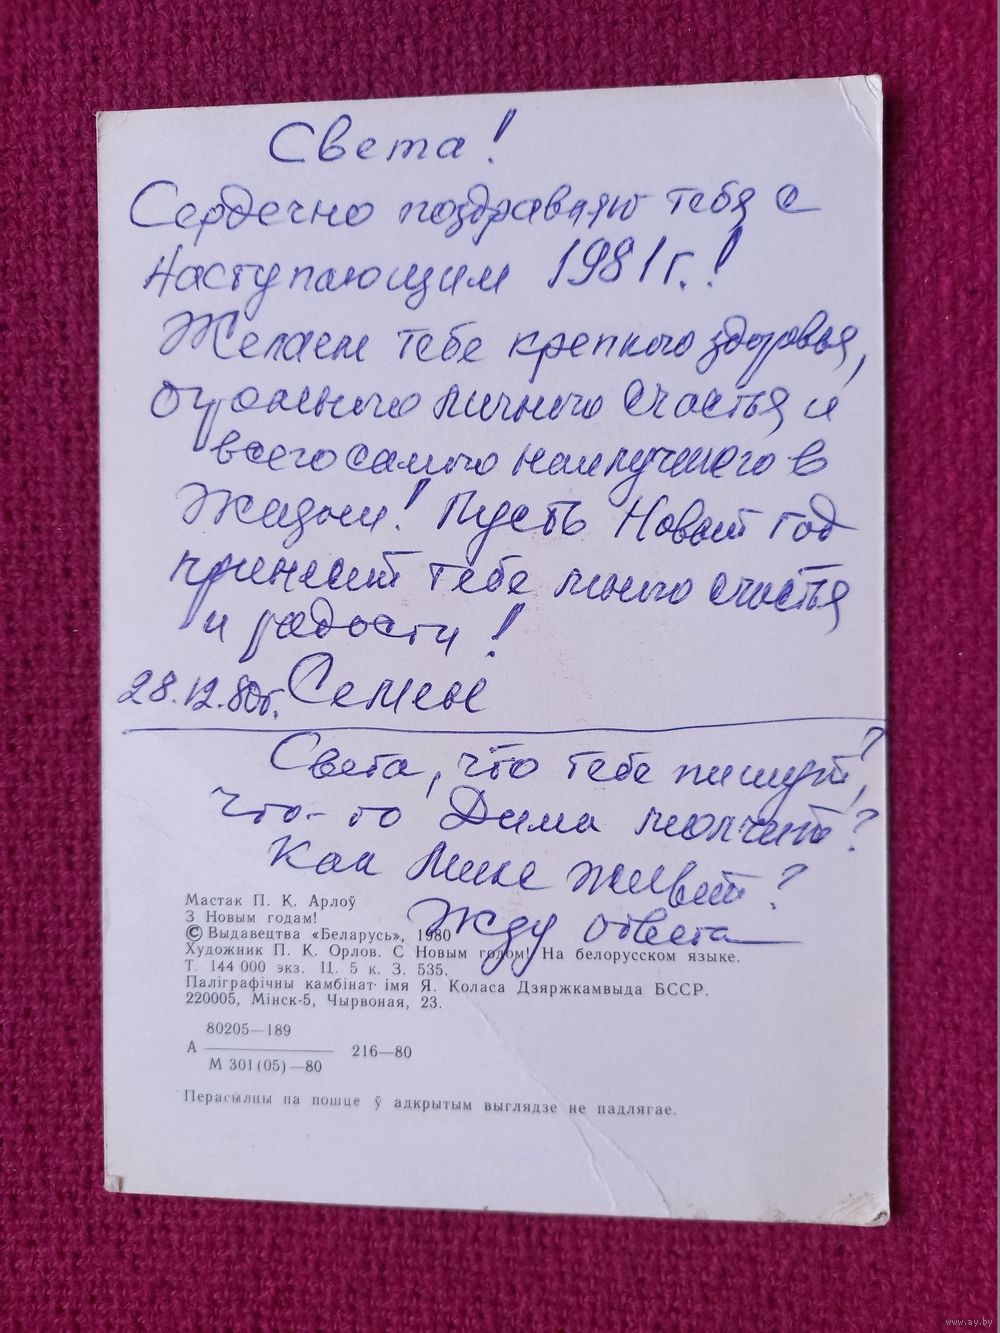 Света!
Сердечно поздравляю тебя с
наступающим 1981 г.!
Желаем тебе крепкого здоровья,
огромного личного счастья и
всего самого наилучшего в
жизни! Пусть Новый год
принесет тебе много счастья
и радости!
28.12.80г. Семен
Света, что тебе пишут?,
что-то Дима молчит?
Как Мике живет?
Жду ответа
Мастак П. К. Арлоў
З Новым годам!
© Выдавецтва «Беларусь», 1980
Художник П. К. Орлов. С Новым годом! На белорусском языке.
Т. 144 000 экз. Ц. 5 к. З. 535.
Паліграфічны камбінат імя Я. Коласа Дзяржкамвыда БССР.
220005, Мінск-5, Чырвоная, 23.
80205—189
А 216—80
М 301(05)—80
Перасылцы па пошце ў адкрытым выглядзе не падлягае.
www.ay.by